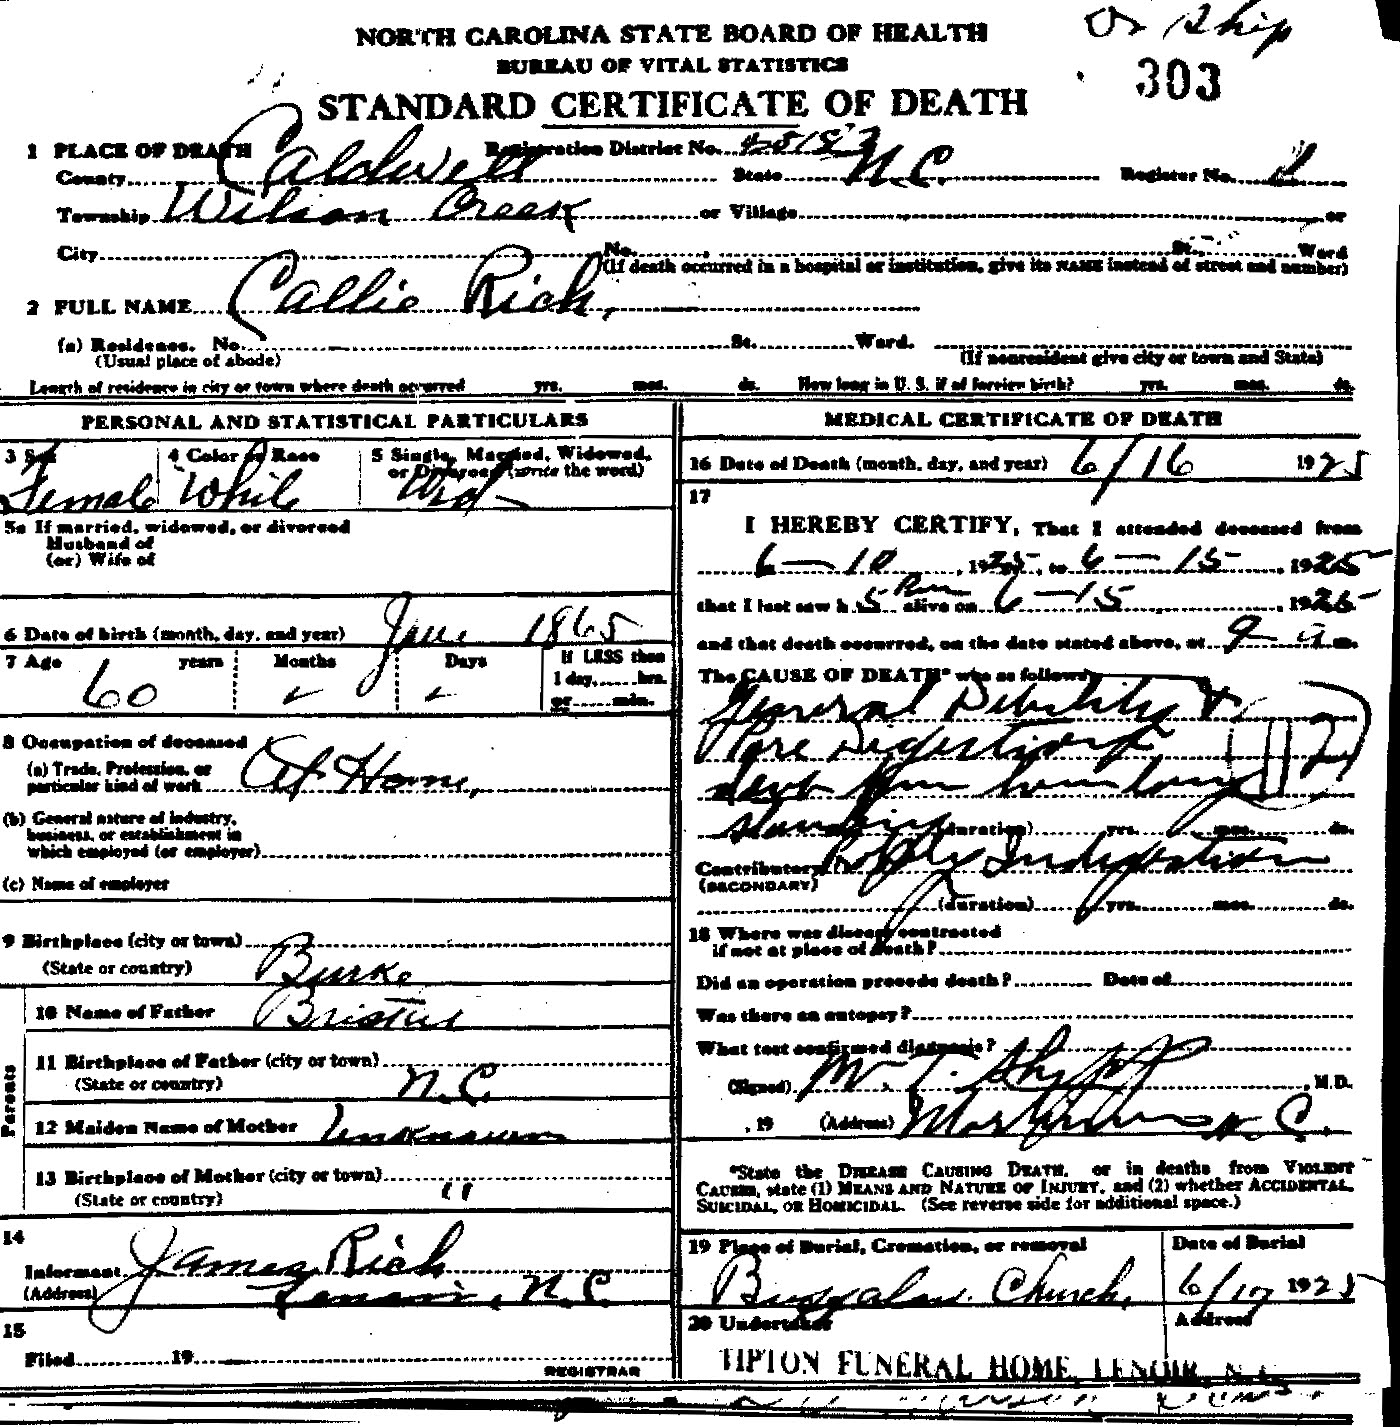 Or Ship
NORTH CAROLINA STATE BOARD OF HEALTH
BUREAU OF VITAL STATISTICS
303
STANDARD CERTIFICATE OF DEATH
1 PLACE OF DEATH Registration District No.
County Caldwell State N.C. Register No.
Township Wilson Creek or Village or
City No. St. Ward
(If death occurred in a hospital or institution, give its NAME instead of street and number)
2 FULL NAME Callie Rich,
(a) Residence. No. St. Ward.
(Usual place of abode) (If nonresident give city or town and State)
Length of residence in city or town where death occurred yrs. mos. ds. How long in U. S. if of foreign birth? yrs. mos. ds.
PERSONAL AND STATISTICAL PARTICULARS
3 Sex 4 Color or Race 5 Single, Married, Widowed, or Divorced (write the word)
Female White Wid
5a If married, widowed, or divorced
Husband of
(or) Wife of
6 Date of birth (month, day, and year) June 1865
7 Age years Months Days If LESS than
1 day, hrs.
60 or min.
8 Occupation of deceased
(a) Trade, Profession, or
particular kind of work At Home,
(b) General nature of industry,
business, or establishment in
which employed (or employer)
(c) Name of employer
9 Birthplace (city or town)
(State or country) Burke
Parents
10 Name of Father Bristol
11 Birthplace of Father (city or town)
(State or country) N.C.
12 Maiden Name of Mother Unknown
13 Birthplace of Mother (city or town)
(State or country) "
14
Informant James Rich
(Address) Lenoir, N.C.
15
Filed 19
REGISTRAR
MEDICAL CERTIFICATE OF DEATH
16 Date of Death (month, day, and year) 6/16 1925
17
I HEREBY CERTIFY, That I attended deceased from
6-10, 1925, to 6-15, 1925
that I last saw h alive on 6-15, 1925
and that death occurred, on the date stated above, at 9 a m.
The CAUSE OF DEATH* was as follows:
General Debility &
Pore Digestion
long
standing (duration) yrs. mos. ds.
Contributory Indigestion
(SECONDARY)
(duration) yrs. mos. ds.
18 Where was disease contracted
if not at place of death?
Did an operation precede death? Date of
Was there an autopsy?
What test confirmed diagnosis?
(Signed) M. T. Shipp, M.D.
, 19 (Address) N.C.
*State the DISEASE CAUSING DEATH, or in deaths from VIOLENT
CAUSES, state (1) MEANS AND NATURE OF INJURY, and (2) whether ACCIDENTAL,
SUICIDAL, OR HOMICIDAL. (See reverse side for additional space.)
19 Place of Burial, Cremation, or removal Date of Burial
Church, 6/17 1925
20 Undertaker Address
TIPTON FUNERAL HOME, LENOIR, N.C.